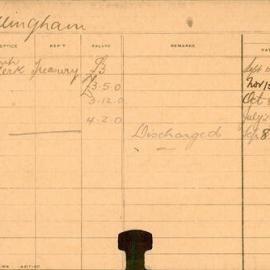 llingham
OFFICE DEP'T SALARY REMARKS
erk Treasury £3
3.5.0 Nov
3.12.0 Oct
4.2.0 July
Discharged 8